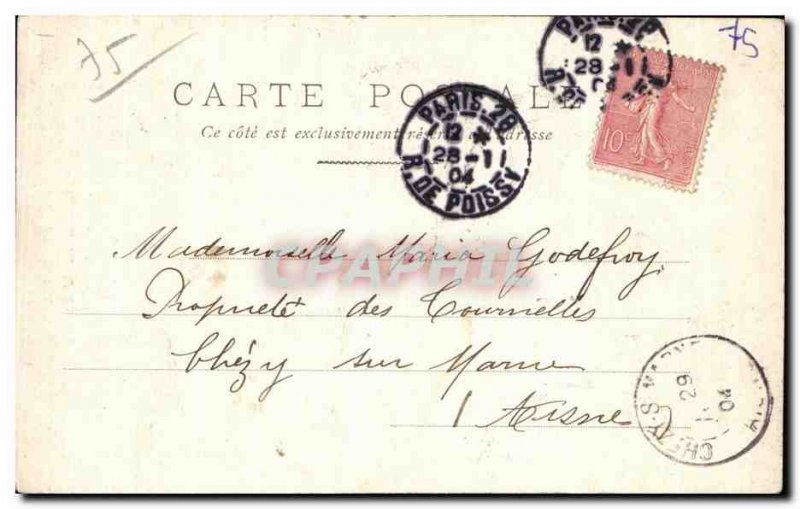 75
75
CARTE POSTALE
Ce côté est exclusivement réservé à l'adresse
PARIS 28
12 *
28 - 11
04
R. DE POISSY
PARIS 28
12 *
28 - 11
04
10c
Mademoiselle Maria Godefroy
Propriété des Tournelles
Chézy sur Marne
Aisne
CPAPHIL
CHEZY-S-MARNE
29
04